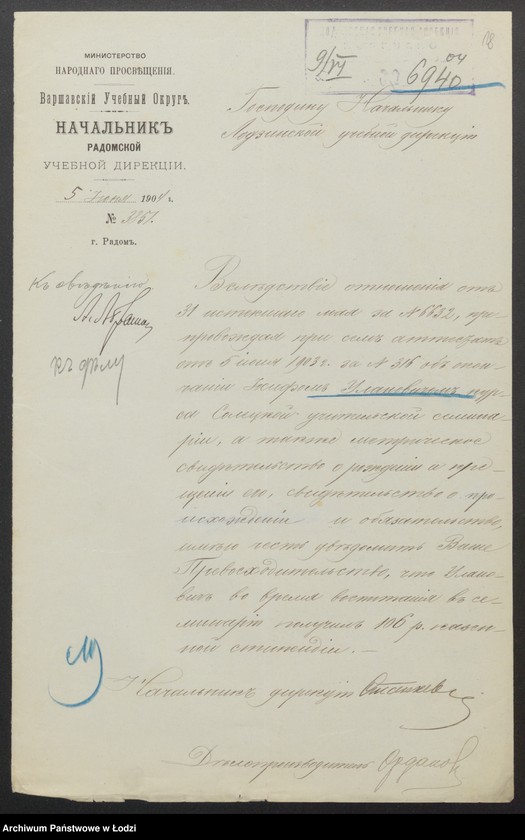 МИНИСТЕРСТВО
НАРОДНАГО ПРОСВѢЩЕНІЯ.
Варшавскій Учебный Округъ.
НАЧАЛЬНИКЪ
РАДОМСКОЙ
УЧЕБНОЙ ДИРЕКЦІИ.
5 Іюня 1904 г.
№ 3257.
г. Радомъ.
9/VI 6940 04
18
Господину Начальнику
Лодзинской учебной дирекціи
Къ свѣдѣнію
къ дѣлу
Вслѣдствіе отношенія отъ
31 истекшаго мая за № 6632, пре-
провождая при семъ аттестатъ
отъ 5 іюня 1903 г. за № 316 объ окон-
чаніи Улановичемъ кур-
са Сенницкой учительской семина-
ріи, а также метрическое
свидѣтельство о рожденіи и кре-
щеніи его, свидѣтельство о про-
исхожденіи и обязательство,
имѣю честь увѣдомить Ваше
Превосходительство, что Улано-
вичъ во время воспитанія въ се-
минаріи получилъ 106 р. казен-
ной стипендіи.
Начальникъ дирекціи
Дѣлопроизводитель
Archiwum Państwowe w Łodzi